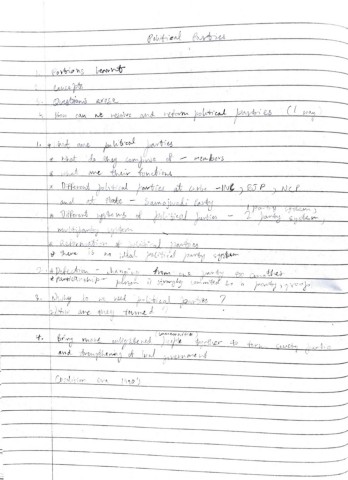 Political Parties
1. Portions learnt
2. Concepts
3. Questions arose
4. How can we resolve and reform political parties (1 way
1. * What are political parties
* what do they comprise of - members
* what are their functions
* Different political parties at centre - INC, BJP, NCP
and at state - Samajwadi Party
* Different systems of political parties - 1 party system, 2 party system,
multiparty system
* Reformation of political parties
* There is no ideal political party system
2. * Defection - changing from one party to another
* Partisanship - person is strongly committed to a party, group
3. Why do we need political parties ?
How are they formed
4. * Bring more people together to form
and strengthening of local government